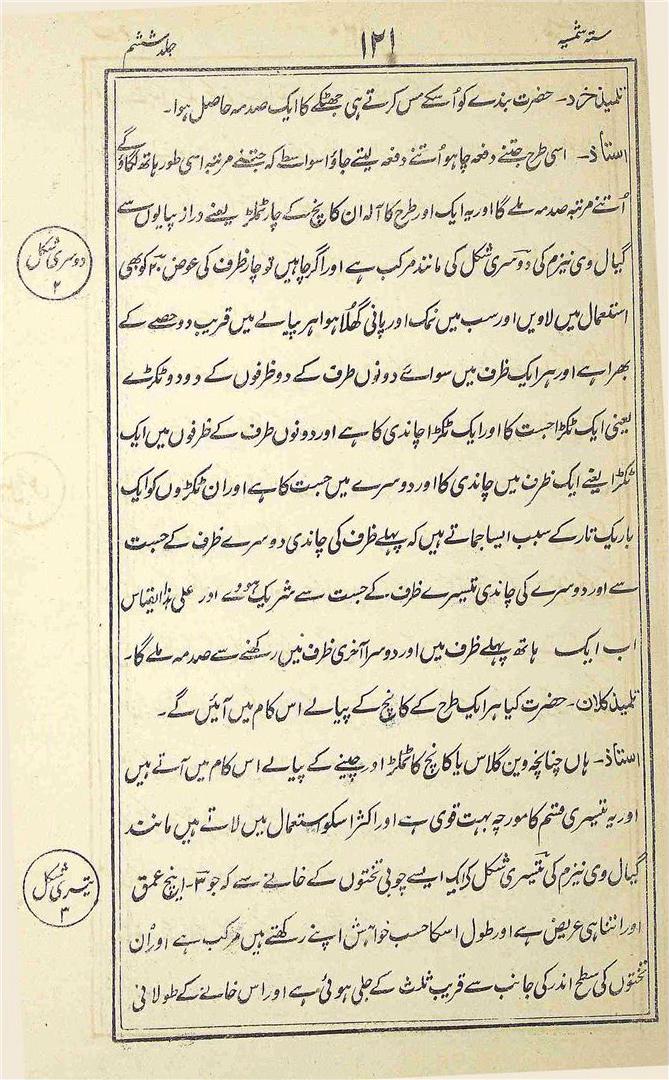 ستہ شمسیہ ۱۲۱ جلد ششم
تلمیذ خرد۔ حضرت بندے کو اُسکے مس کرتے ہی جھٹکے کا ایک صدمہ حاصل ہوا۔
استاذ۔ اسی طرح جتنے دفعہ چاہو اُتنے دفعہ لیتے جاؤ اسواسطے کہ جتنے مرتبہ اسی طور ہاتھ لگاؤ گے
اُتنے مرتبہ صدمہ ملے گا اور یہ ایک اور طرح کا آلہ ان کانچ کے چار ٹملر یعنے دراز پیالوں سے
گیال وی نیزم کی دوسری شکل کی مانند مرکب ہے اور اگر چاہیں تو چار ظرف کی عوض ۲۰ کو بھی
دوسری شکل ۲
استعمال میں لاویں اور سب میں نمک اور پانی گھلا ہوا ہر پیالے میں قریب دو حصے کے
بھرا ہے اور ہر ایک ظرف میں سوائے دونوں طرف کے دو ظرفوں کے دو دو ٹکڑے
یعنی ایک ٹکڑا جست کا اور ایک ٹکڑا چاندی کا ہے اور دونوں طرف کے ظرفوں میں ایک
ٹکڑا یعنے ایک ظرف میں چاندی کا اور دوسرے میں جست کا ہے اور ان ٹکڑوں کو ایک
باریک تار کے سبب ایسا جماتے ہیں کہ پہلے ظرف کی چاندی دوسرے ظرف کے جست
سے اور دوسرے کی چاندی تیسرے ظرف کے جست سے شریک ہووے اور علی ہذا القیاس
اب ایک ہاتھ پہلے ظرف میں اور دوسرا آخری ظرف میں رکھنے سے صدمہ ملے گا۔
تلمیذ کلان۔ حضرت کیا ہر ایک طرح کے کانچ کے پیالے اس کام میں آئیں گے۔
استاذ۔ ہاں چنانچہ وین گلاس یا کانچ کا ٹملر اور چینے کے پیالے اس کام میں آتے ہیں
اور یہ تیسری قسم کا مورچہ بہت قوی ہے اور اکثر اسکو استعمال میں لاتے ہیں مانند
گیال وی نیزم کی تیسری شکل کی ایک ایسے چوبی تختوں کے خانے سے کہ جو ۳۔ اینچ عمق
تیسری شکل ۳
اور اتنا ہی عریض ہے اور طول اسکا حسب خواہش اپنے رکھتے ہیں مرکب ہے اور اُن
تختوں کی سطح اندر کی جانب سے قریب ثلث کے جلی ہوئی ہے اور اس خانے کے طولانی